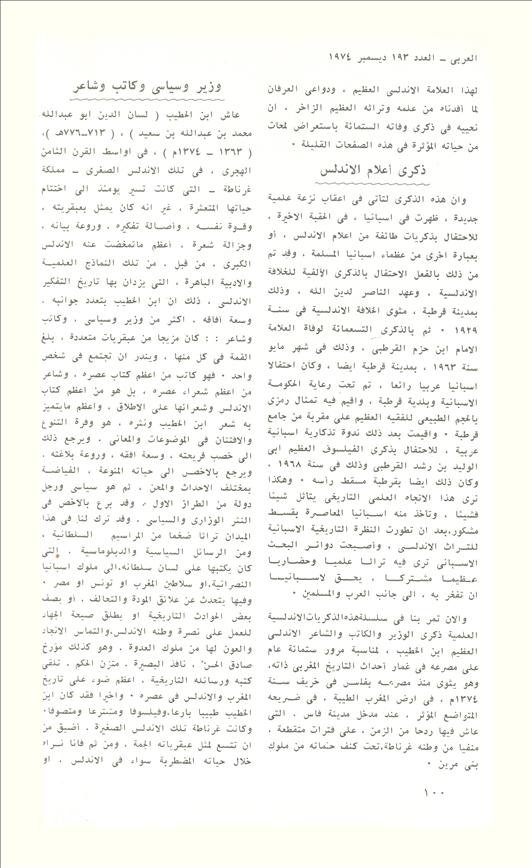 العربى – العدد ١٩٣ ديسمبر ١٩٧٤
لهذا العلامة الاندلسى العظيم ، ودواعى العرفان
لما أفدناه من علمه وتراثه العظيم الزاخر ، ان
نحييه فى ذكرى وفاته الستمائة باستعراض لمحات
من حياته المؤثرة فى هذه الصفحات القليلة ٠
ذكرى أعلام الاندلس
وان هذه الذكرى لتأتى فى اعقاب نزعة علمية
جديدة ، ظهرت فى اسبانيا ، فى الحقبة الاخيرة ،
للاحتفال بذكريات طائفة من اعلام الاندلس ، أو
بعبارة اخرى من عظماء اسبانيا المسلمة ، وقد تم
من ذلك بالفعل الاحتفال بالذكرى الألفية للخلافة
الاندلسية ، وعهد الناصر لدين الله ، وذلك
بمدينة قرطبة ، مثوى الخلافة الاندلسية فى سنة
١٩٢٩ ٠ ثم بالذكرى التسعمائة لوفاة العلامة
الامام ابن حزم القرطبى ، وذلك فى شهر مايو
سنة ١٩٦٣ ، بمدينة قرطبة ايضا ، وكان احتفالا
اسبانيا عربيا رائعا ، تم تحت رعاية الحكومة
الاسبانية وبلدية قرطبة ، واقيم فيه تمثال رمزى
بالحجم الطبيعى للفقيه العظيم على مقربة من جامع
قرطبة ٠ واقيمت بعد ذلك ندوة تذكارية اسبانية
عربية ، للاحتفال بذكرى الفيلسوف العظيم ابى
الوليد بن رشد القرطبى وذلك فى سنة ١٩٦٨ ،
وكان ذلك ايضا بقرطبة مسقط رأسه ٠ وهكذا
نرى هذا الاتجاه العلمى التاريخى يتأثل شيئا
فشيئا ، وتأخذ منه اسبانيا المعاصرة بقسط
مشكور، بعد ان تطورت النظرة التاريخية الاسبانية
للتراث الاندلسى ، وأصبحت دوائر البحث
الاسبانى ترى فيه تراثا علميا وحضاريا
عظيما مشتركا ، يحق لاسبانيا
ان تفخر به ، الى جانب العرب والمسلمين ٠
والان تمر بنا فى سلسلة هذه الذكريات الاندلسية
العلمية ذكرى الوزير والكاتب والشاعر الاندلسى
العظيم ابن الخطيب ، لمناسبة مرور ستمائة عام
على مصرعه فى غمار أحداث التاريخ المغربى ذاته،
وهو يثوى منذ مصرعه بفاس فى خريف سنة
١٣٧٤م ، فى ارض المغرب الطيبة ، فى ضريحه
المتواضع المؤثر ، عند مدخل مدينة فاس ، التى
عاش فيها ردحا من الزمن ، على فترات متقطعة ،
منفيا من وطنه غرناطة، تحت كنف حماته من ملوك
بنى مرين ٠
وزير وسياسى وكاتب وشاعر
عاش ابن الخطيب ( لسان الدين ابو عبدالله
محمد بن عبدالله بن سعيد ) ، ( ٧١٣–٧٧٦هـ )،
( ١٣٦٣ – ١٣٧٤م ) ، فى اواسط القرن الثامن
الهجرى ، فى تلك الاندلس الصغرى – مملكة
غرناطة – التى كانت تسير يومئذ الى اختتام
حياتها المتعثرة ، غير انه كان يمثل بعبقريته ،
وقوة نفسه ، وأصالة تفكيره ، وروعة بيانه ،
وجزالة شعرة ، أعظم ماتمخضت عنه الاندلس
الكبرى ، من قبل ، من تلك النماذج العلمية
والادبية الباهرة ، التى يزدان بها تاريخ التفكير
الاندلسى ، ذلك ان ابن الخطيب بتعدد جوانبه ،
وسعة أفاقه ، اكثر من وزير وسياسى ، وكاتب
وشاعر : : كان مزيجا من عبقريات متعددة ، بلغ
القمة فى كل منها ، ويندر ان تجتمع فى شخص
واحد ٠ فهو كاتب من اعظم كتاب عصره ، وشاعر
من اعظم شعراء عصره ، بل هو من اعظم كتاب
الاندلس وشعرائها على الاطلاق ، واعظم مايتميز
به شعر ابن الخطيب ونثره ، هو وفرة التنوع
والافتنان فى الموضوعات والمعانى ، ويرجع ذلك
الى خصب قريحته ، وسعة افقه ، وروعة بلاغته ،
ويرجع بالاخص الى حياته المنوعة ، الفياضة
بمختلف الاحداث والمحن ، ثم هو سياسى ورجل
دولة من الطراز الاول ، وقد برع بالاخص فى
النثر الوزارى والسياسى ، وقد ترك لنا فى هذا
الميدان تراثا ضخما من المراسيم السلطانية ،
ومن الرسائل السياسية والدبلوماسية ، التى
كان يكتبها على لسان سلطانه، الى ملوك اسبانيا
النصرانية، او سلاطين المغرب او تونس او مصر ٠
وفيها يتحدث عن علائق المودة والتحالف ، أو يصف
بعض الحوادث التاريخية أو يطلق صيحة الجهاد
للعمل على نصرة وطنه الاندلس، والتماس الانجاد
والعون لها من ملوك العدوة ، وهو كذلك مؤرخ
صادق الحس ، نافذ البصيرة ، متزن الحكم ، تلقى
كتبه ورسائله التاريخية ، اعظم ضوء على تاريخ
المغرب والاندلس فى عصره ٠ واخيرا فقد كان ابن
الخطيب طبيبا بارعا، وفيلسوفا ومتشرعا ومتصوفا٠
وكانت غرناطة تلك الاندلس الصغيرة ، أضيق من
ان تتسع لمثل عبقرياته الجمة ، ومن ثم فانا نراه
خلال حياته المضطربة سواء فى الاندلس ، او
١٠٠